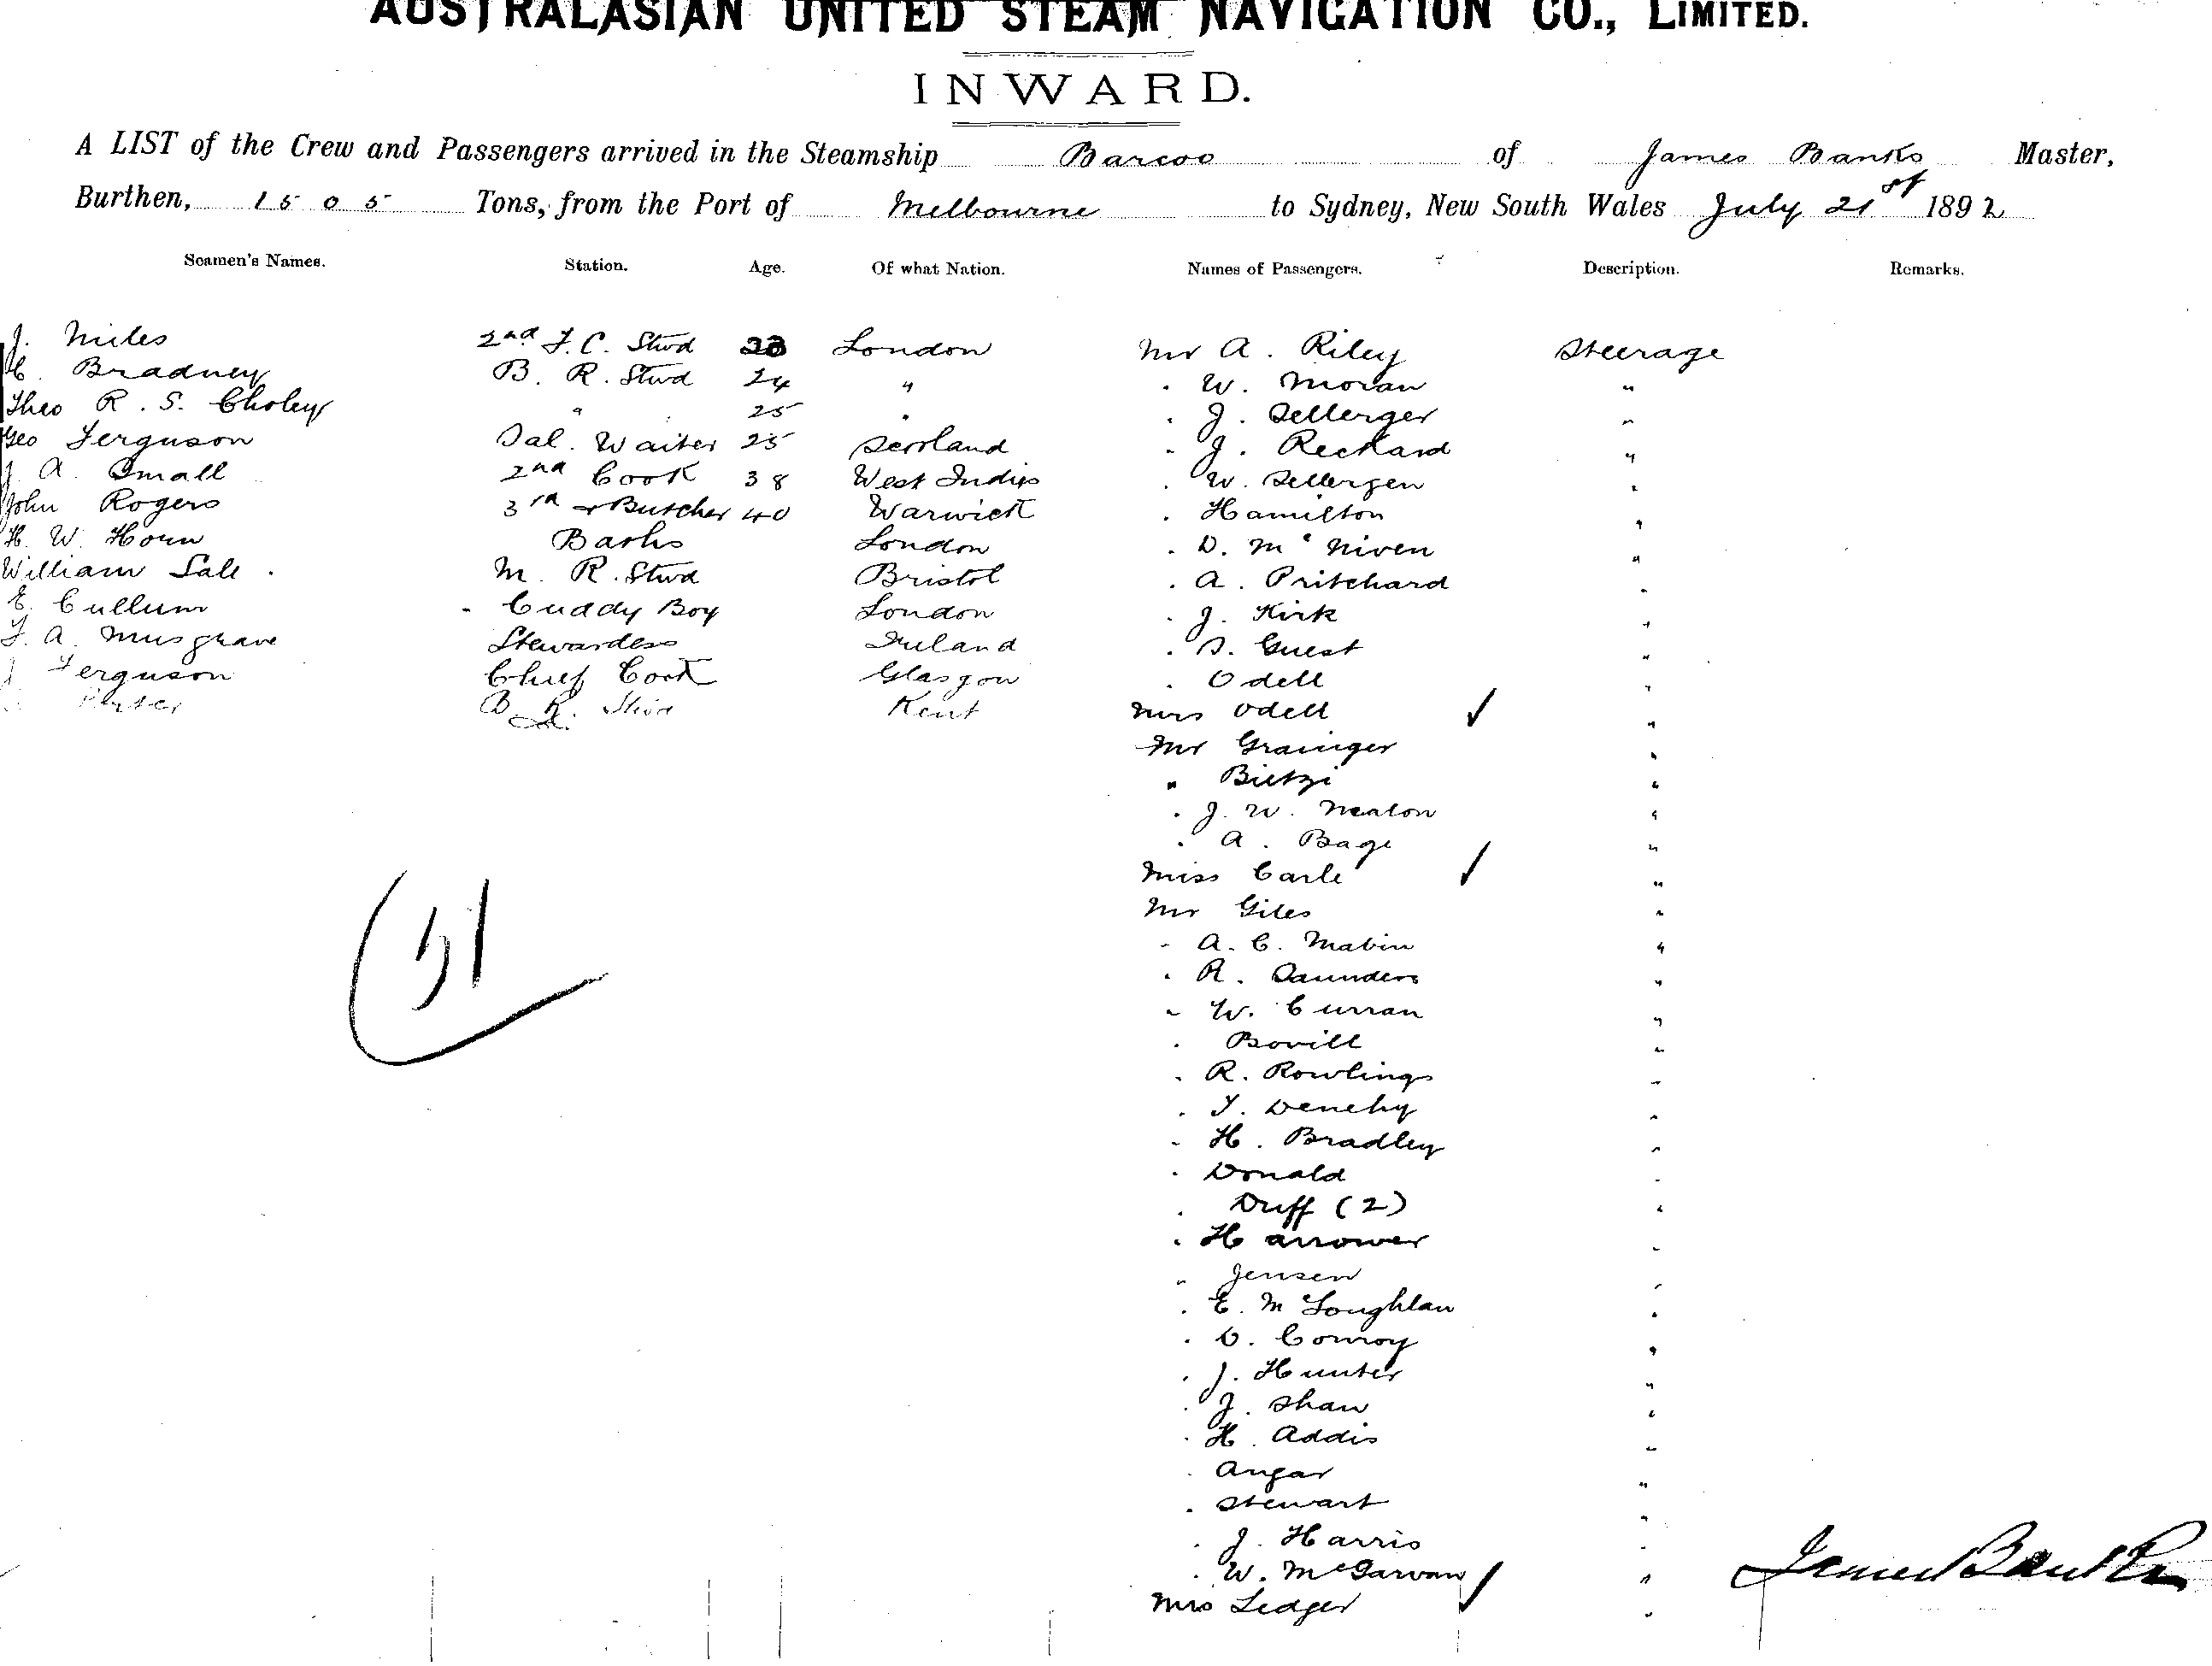 AUSTRALASIAN UNITED STEAM NAVIGATION CO., LIMITED.
INWARD.
A LIST of the Crew and Passengers arrived in the Steamship Barcoo of James Banks Master,
Burthen, 1505 Tons, from the Port of Melbourne to Sydney, New South Wales July 21st 1892
Seamen's Names. Station. Age. Of what Nation. Names of Passengers. Description. Remarks.
J. Miles 2nd F.C. Stwd 23 London Mr A. Riley Steerage
C. Bradney B. R. Stwd 24 " . W. Moran "
Theo R. S. Choley " 25 " . J. Sellerger "
Geo Ferguson Sal. Waiter 25 Scotland . J. Reckard "
J A. Small 2nd Cook 38 West Indies . W. Sellergen "
John Rogers 3rd + Butcher 40 Warwick . Hamilton "
H. W. Horn Barks London . D. Mc Niven "
William Sale . M. R. Stwd Bristol . A. Pritchard "
E. Cullum - Cuddy Boy London . J. Kirk "
F. A. Musgrave Stewardess Ireland . S. Guest "
J Ferguson Chief Cook Glasgow . Odell "
B. R. Stwd Kent Mrs Odell ✓ "
Mr Grainger "
" Bietzi "
. J. W. Neaton "
. A. Bage "
Miss Carle ✓ "
Mr Giles "
. A. C. Mabin "
. R. Saunders "
. W. Curran "
. Bovill "
. R. Rowlings "
. T. Denehy "
. H. Bradley "
. Donald "
. Duff (2) "
. Harrower "
" Jensen "
. E. McLoughlan "
. D. Conroy "
. J. Hunter "
. J. Shaw "
. H. Addis "
. Angar "
. Stewart "
. J. Harris "
. W. McGarvan "
Mrs Ledger ✓ "
James Banks
51